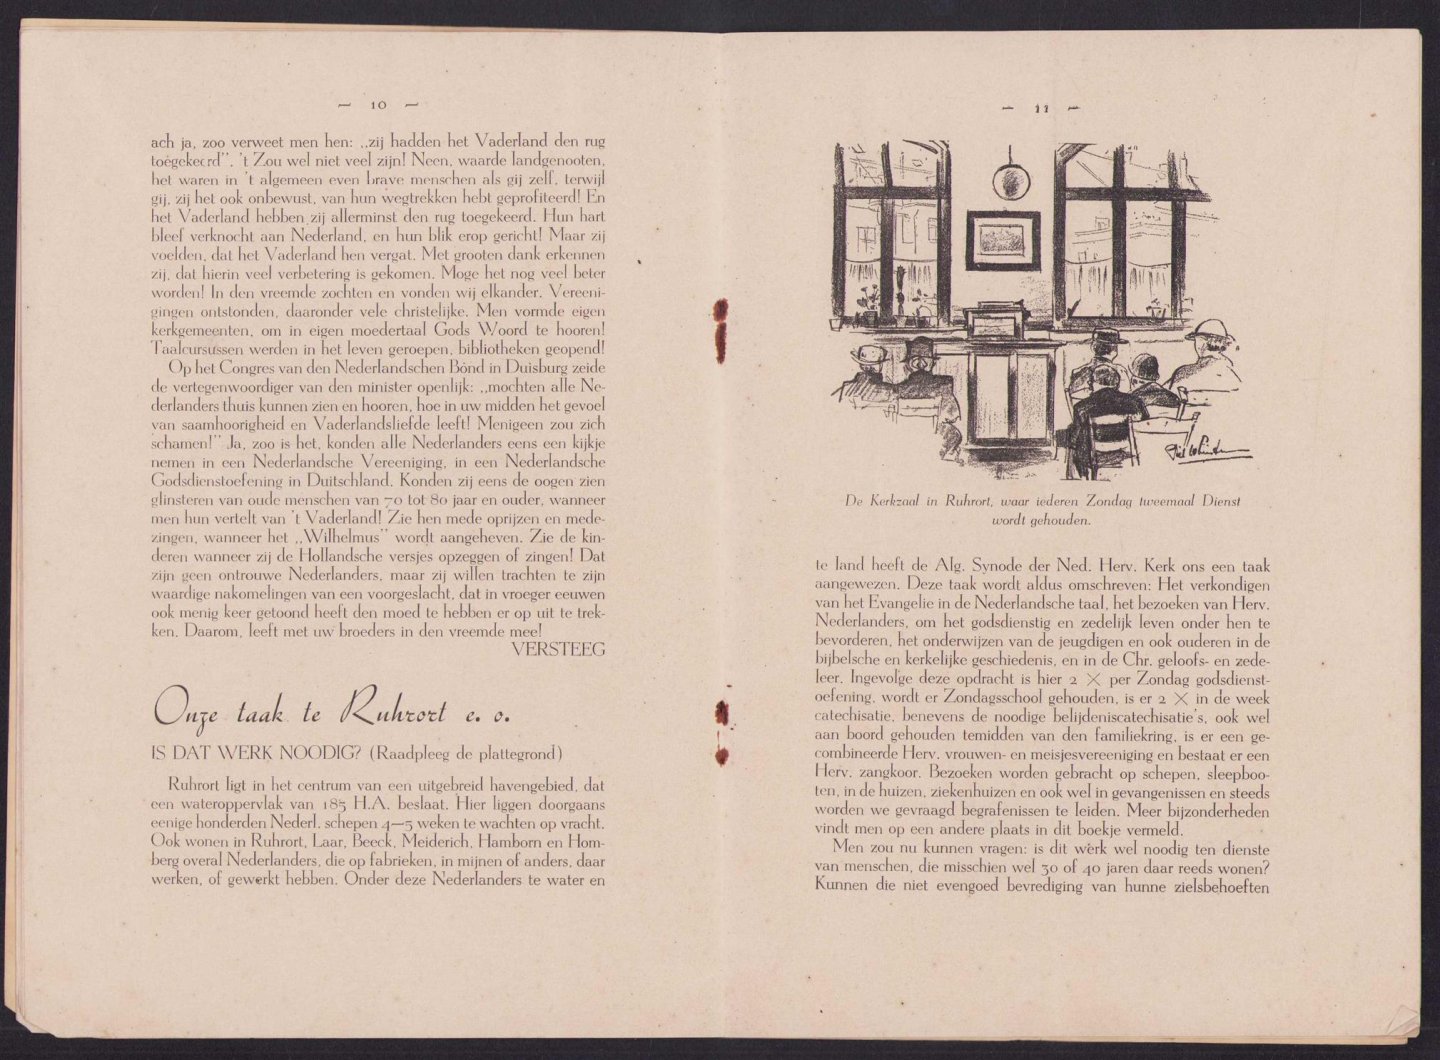 — 10 —
ach ja, zoo verweet men hen: ,,zij hadden het Vaderland den rug
toegekeerd". 't Zou wel niet veel zijn! Neen, waarde landgenooten,
het waren in 't algemeen even brave menschen als gij zelf, terwijl
gij, zij het ook onbewust, van hun wegtrekken hebt geprofiteerd! En
het Vaderland hebben zij allerminst den rug toegekeerd. Hun hart
bleef verknocht aan Nederland, en hun blik erop gericht! Maar zij
voelden, dat het Vaderland hen vergat. Met grooten dank erkennen
zij, dat hierin veel verbetering is gekomen. Moge het nog veel beter
worden! In den vreemde zochten en vonden wij elkander. Vereeni-
gingen ontstonden, daaronder vele christelijke. Men vormde eigen
kerkgemeenten, om in eigen moedertaal Gods Woord te hooren!
Taalcursussen werden in het leven geroepen, bibliotheken geopend!
Op het Congres van den Nederlandschen Bond in Duisburg zeide
de vertegenwoordiger van den minister openlijk: ,,mochten alle Ne-
derlanders thuis kunnen zien en hooren, hoe in uw midden het gevoel
van saamhoorigheid en Vaderlandsliefde leeft! Menigeen zou zich
schamen!" Ja, zoo is het, konden alle Nederlanders eens een kijkje
nemen in een Nederlandsche Vereeniging, in een Nederlandsche
Godsdienstoefening in Duitschland. Konden zij eens de oogen zien
glinsteren van oude menschen van 70 tot 80 jaar en ouder, wanneer
men hun vertelt van 't Vaderland! Zie hen mede oprijzen en mede-
zingen, wanneer het ,,Wilhelmus" wordt aangeheven. Zie de kin-
deren wanneer zij de Hollandsche versjes opzeggen of zingen! Dat
zijn geen ontrouwe Nederlanders, maar zij willen trachten te zijn
waardige nakomelingen van een voorgeslacht, dat in vroeger eeuwen
ook menig keer getoond heeft den moed te hebben er op uit te trek-
ken. Daarom, leeft met uw broeders in den vreemde mee!
VERSTEEG
Onze taak te Ruhrort e. o.
IS DAT WERK NOODIG? (Raadpleeg de plattegrond)
Ruhrort ligt in het centrum van een uitgebreid havengebied, dat
een wateroppervlak van 185 H.A. beslaat. Hier liggen doorgaans
eenige honderden Nederl. schepen 4—5 weken te wachten op vracht.
Ook wonen in Ruhrort, Laar, Beeck, Meiderich, Hamborn en Hom-
berg overal Nederlanders, die op fabrieken, in mijnen of anders, daar
werken, of gewerkt hebben. Onder deze Nederlanders te water en
— 11 —
De Kerkzaal in Ruhrort, waar iederen Zondag tweemaal Dienst
wordt gehouden.
te land heeft de Alg. Synode der Ned. Herv. Kerk ons een taak
aangewezen. Deze taak wordt aldus omschreven: Het verkondigen
van het Evangelie in de Nederlandsche taal, het bezoeken van Herv.
Nederlanders, om het godsdienstig en zedelijk leven onder hen te
bevorderen, het onderwijzen van de jeugdigen en ook ouderen in de
bijbelsche en kerkelijke geschiedenis, en in de Chr. geloofs- en zede-
leer. Ingevolge deze opdracht is hier 2 × per Zondag godsdienst-
oefening, wordt er Zondagsschool gehouden, is er 2 × in de week
catechisatie, benevens de noodige belijdeniscatechisatie's, ook wel
aan boord gehouden temidden van den familiekring, is er een ge-
combineerde Herv. vrouwen- en meisjesvereeniging en bestaat er een
Herv. zangkoor. Bezoeken worden gebracht op schepen, sleepboo-
ten, in de huizen, ziekenhuizen en ook wel in gevangenissen en steeds
worden we gevraagd begrafenissen te leiden. Meer bijzonderheden
vindt men op een andere plaats in dit boekje vermeld.
Men zou nu kunnen vragen: is dit werk wel noodig ten dienste
van menschen, die misschien wel 30 of 40 jaren daar reeds wonen?
Kunnen die niet evengoed bevrediging van hunne zielsbehoeften